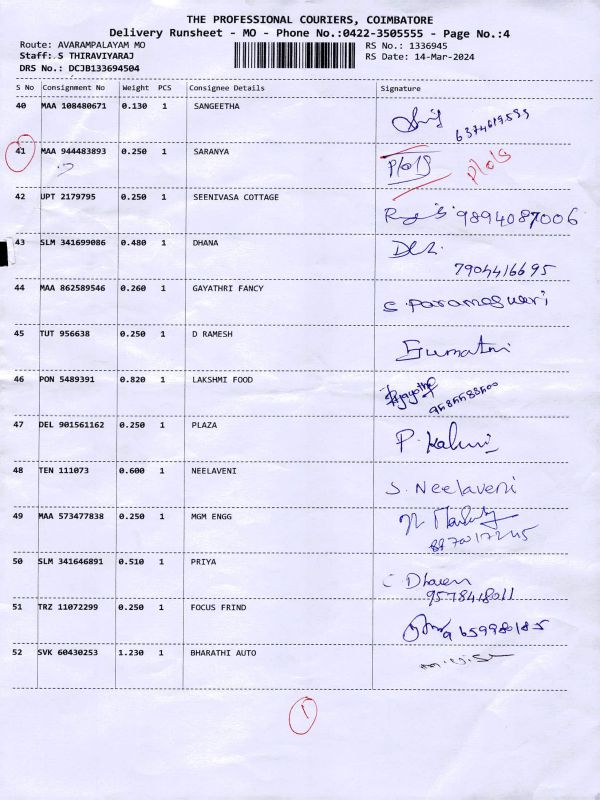 THE PROFESSIONAL COURIERS, COIMBATORE
Delivery Runsheet - MO - Phone No.:0422-3505555 - Page No.:4
Route: AVARAMPALAYAM MO RS No.: 1336945
Staff: S THIRAVIYARAJ RS Date: 14-Mar-2024
DRS No.: DCJB133694504
S No Consignment No Weight PCS Consignee Details Signature
40 MAA 108480671 0.130 1 SANGEETHA
6374619533
41 MAA 944483893 0.250 1 SARANYA
42 UPT 2179795 0.250 1 SEENIVASA COTTAGE 9894087006
43 SLM 341699086 0.480 1 DHANA
7904416695
44 MAA 862589546 0.260 1 GAYATHRI FANCY S. Parameswari
45 TUT 956638 0.250 1 D RAMESH Sumathi
46 PON 5489391 0.820 1 LAKSHMI FOOD
47 DEL 901561162 0.250 1 PLAZA
48 TEN 111073 0.600 1 NEELAVENI S. Neelaveni
49 MAA 573477838 0.250 1 MGM ENGG
50 SLM 341646891 0.510 1 PRIYA
9578418011
51 TRZ 11072299 0.250 1 FOCUS FRIND 9659980185
52 SVK 60430253 1.230 1 BHARATHI AUTO
1